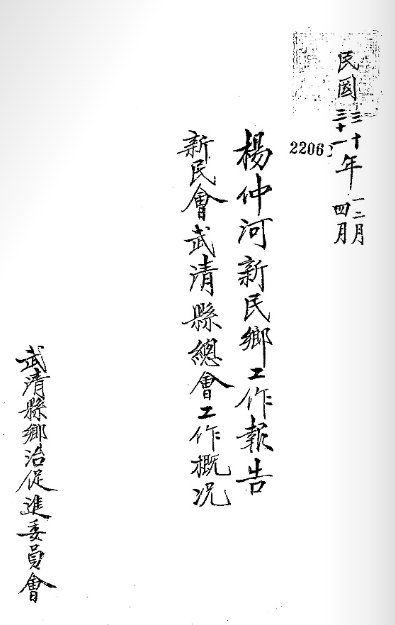 民国
三十
三十一
年
一二月
四月
2206
楊仲河新民鄉工作報告
新民會武清縣總會工作概况
武清縣鄉治促進委員會